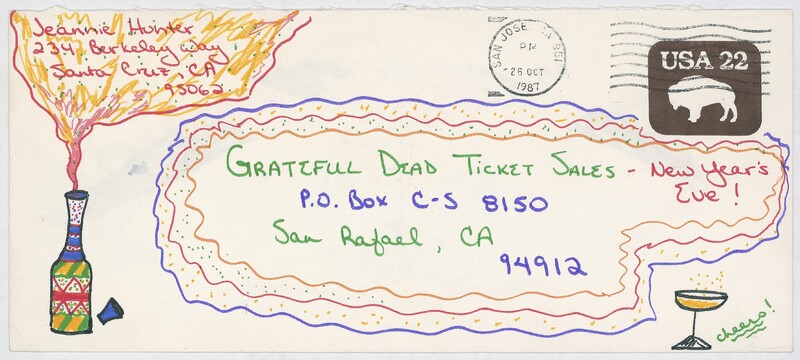 Jeannie Hunter
234 Berkeley Way
Santa Cruz CA
95062
SAN JOSE, CA 951
PM
26 OCT
1987
USA 22
GRATEFUL DEAD TICKET SALES - New Year's
Eve!
P.O. Box C-S 8150
San Rafael, CA
94912
cheers!